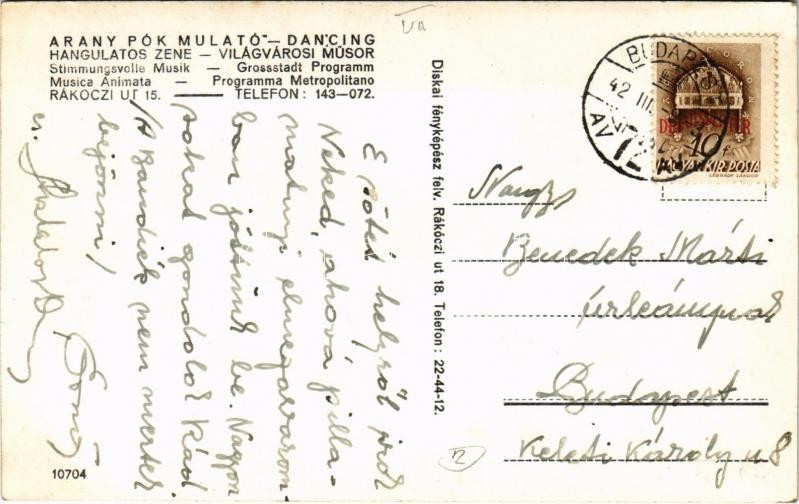 ARANY PÓK MULATÓ — DANCING
HANGULATOS ZENE — VILÁGVÁROSI MŰSOR
Stimmungsvolle Musik — Grossstadt Programm
Musica Animata — Programma Metropolitano
RÁKÓCZI UT 15. — TELEFON: 143—072.
E sötét helyről írok
Neked, ahová pilla-
natnyi elmezavarom-
ban jöttünk be. Nagyon
sokat gondolok Rád
/A Bandiék nem mertek
bejönni/
10704
Diskai fényképész felv. Rákóczi ut 18. Telefon: 22-44-12.
BUDAPEST
42 III.
10
MAGYAR KIR. POSTA
LÉGRÁDY SÁNDOR
Nagys
Benedek Márti
úrleánynak
Budapest
Keleti Károly u 8